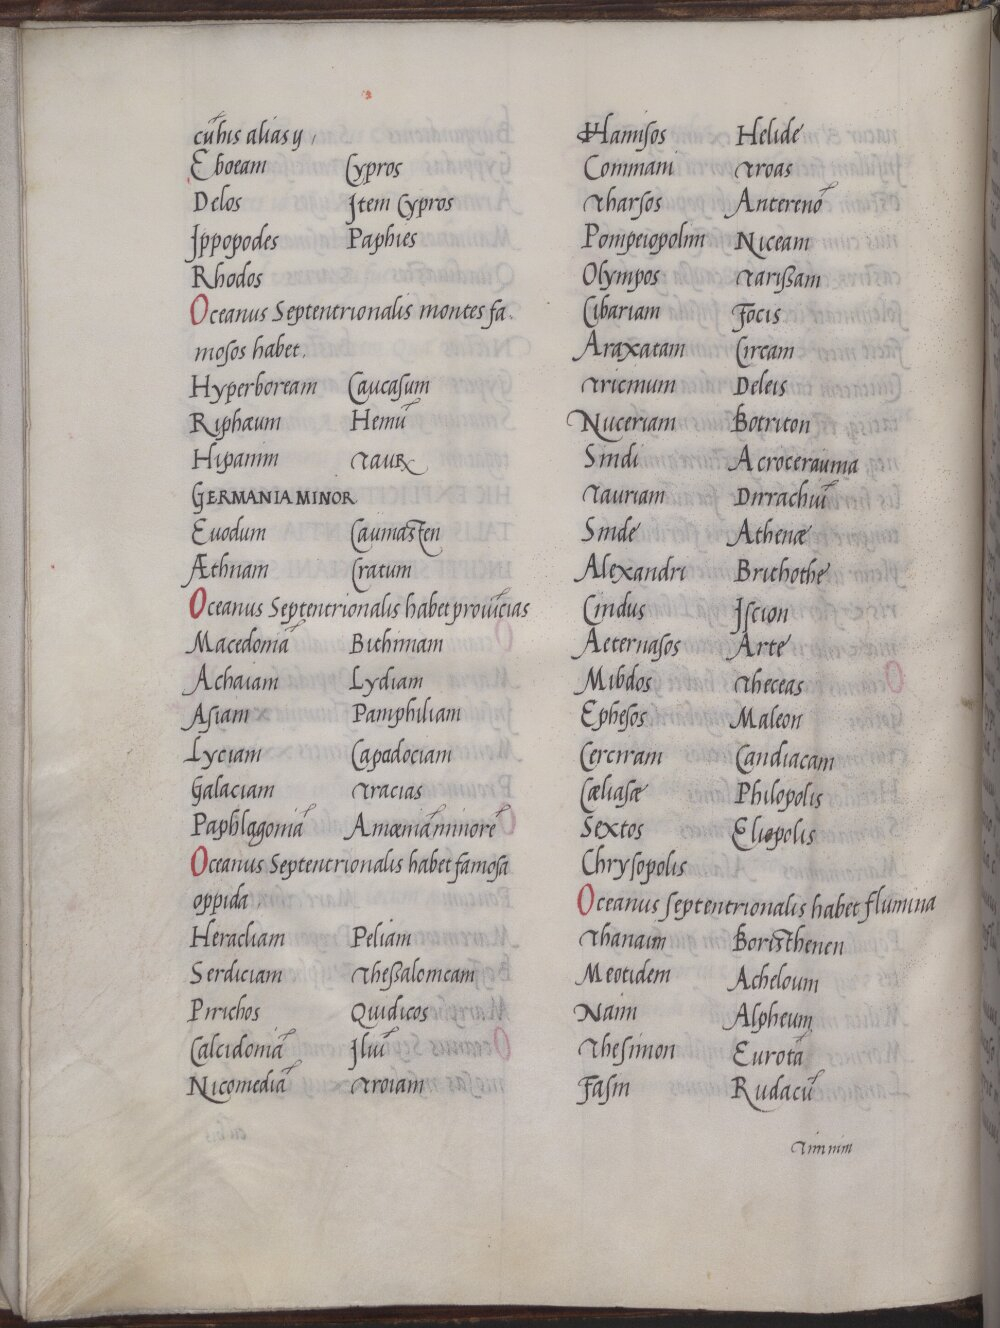 cū his alias y,
Eboeam Cypros
Delos Item Cypros
Ippopodes Paphies
Rhodos
Oceanus Septentrionalis montes fa.
mosos habet.
Hyperboream Caucasum
Riphæum Hemū
Hipanim Taurꝝ
GERMANIA MINOR
Euodum Caumasten
Æthnam Cratum
Oceanus Septentrionalis habet prouīcias
Macedoniā Bithiniam
Achaiam Lydiam
Asiam Pamphiliam
Lyciam Capadociam
Galaciam Tracias
Paphlagoniā Amœniā minorē
Oceanus Septentrionalis habet famosa
oppida
Heracliam Peliam
Serdiciam Theßalonicam
Pirichos Quidicos
Calcidoniā Iliū
Nicomediā Troiam
Hamisos Helide
Commani Troas
Tharsos Anterenō
Pompeiopolim Niceam
Olympos Tarißam
Cibariam Focis
Araxatam Circam
Tricinum Deleis
Nuceriam Botriton
Sindi Acrocerauma
Tauriam Dirrachiū
Sinde Athenæ
Alexandri Brithothe
Cindus Iscion
Aeternasos Arte
Mibdos Theceas
Ephesos Maleon
Cerciram Candiacam
Cæliasæ Philopolis
Sextos Eliopolis
Chrysopolis
Oceanus septentrionalis habet flumina
Thanaim Boristhenen
Meotidem Acheloum
Naim Alpheum
Thesimon Eurotā
Fasin Rudacū